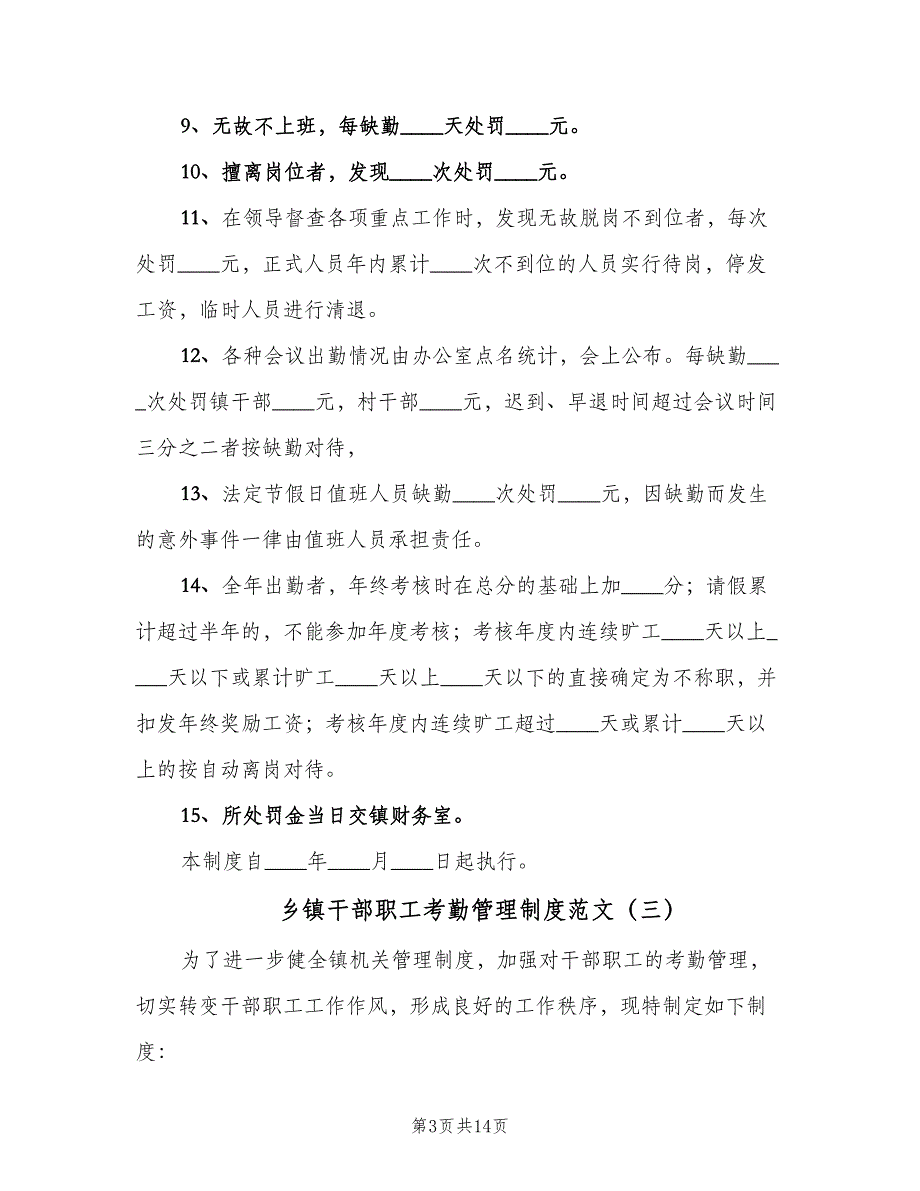 9、无故不上班，每缺勤____天处罚____元。
10、擅离岗位者，发现____次处罚____元。
11、在领导督查各项重点工作时，发现无故脱岗不到位者，每次
处罚____元，正式人员年内累计____次不到位的人员实行待岗，停发
工资，临时人员进行清退。
12、各种会议出勤情况由办公室点名统计，会上公布。每缺勤___
_次处罚镇干部____元，村干部____元，迟到、早退时间超过会议时间
三分之二者按缺勤对待，
13、法定节假日值班人员缺勤____次处罚____元，因缺勤而发生
的意外事件一律由值班人员承担责任。
14、全年出勤者，年终考核时在总分的基础上加____分；请假累
计超过半年的，不能参加年度考核；考核年度内连续旷工____天以上_
___天以下或累计旷工____天以上____天以下的直接确定为不称职，并
扣发年终奖励工资；考核年度内连续旷工超过____天或累计____天以
上的按自动离岗对待。
15、所处罚金当日交镇财务室。
本制度自____年____月____日起执行。
乡镇干部职工考勤管理制度范文（三）
为了进一步健全镇机关管理制度，加强对干部职工的考勤管理，
切实转变干部职工工作作风，形成良好的工作秩序，现特制定如下制
度：
第3页共14页